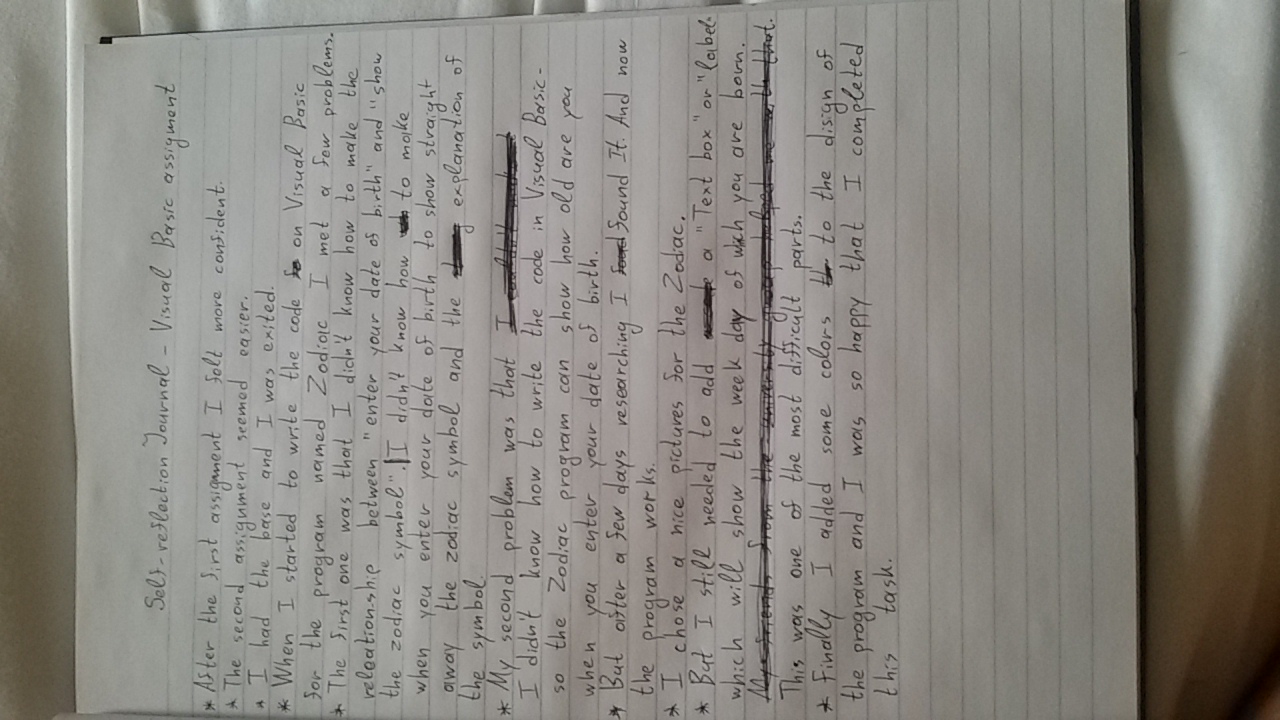 Self-reflection Journal - Visual Basic assigment
* After the first assignment I folt more confident.
* The second assignment seemed easier.
* I had the base and I was exited.
* When I started to write the code on Visual Basic
for the program named Zodiac I met a few problems.
* The first one was that I didn't know how to make the
releationship between "enter your date of birth" and "show
the zodiac symbol". I didn't know how to make
when you enter your date of birth to show straight
away the zodiac symbol and the explanation of
the symbol
* My second problem was that I
I didn't know how to write the code in Visual Basic -
so the Zodiac program can show how old are you
when you enter your date of birth.
* But after a few days researching I found It. And now
the program works.
* I chose a nice pictures for the Zodiac.
* But I still needed to add a "Text box" or "label"
which will show the week day of wich you are born.
My friends from the university group helped me with that.
This was one of the most difficult parts.
* Finally I added some colors to the disign of
the program and I was so happy that I completed
this task.